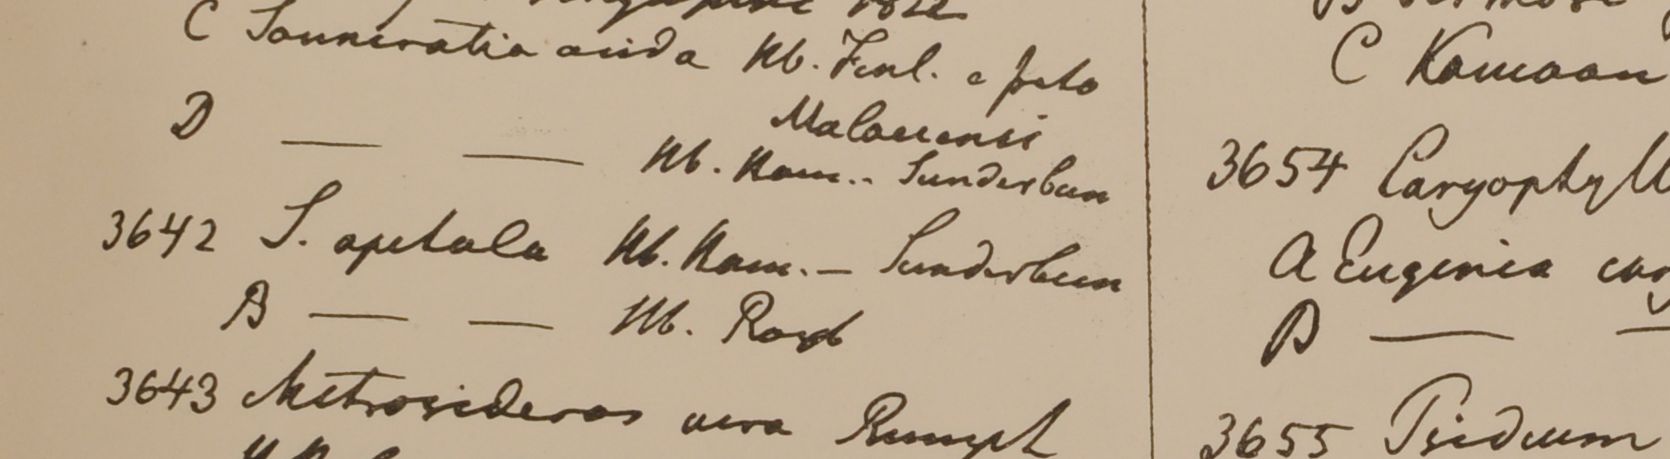 1822
C Sonneratia acida Hb. Finl. e freto
Malaccensi
D — — Hb. Ham.. Sunderbun
3642 S. apetala Hb. Ham. — Sunderbun
B — — Hb. Roxb
3643 Metrosideros vera Rumph
C Kamaon
3654 Caryophyll
A Eugenia cary
B — —
3655 Psidium